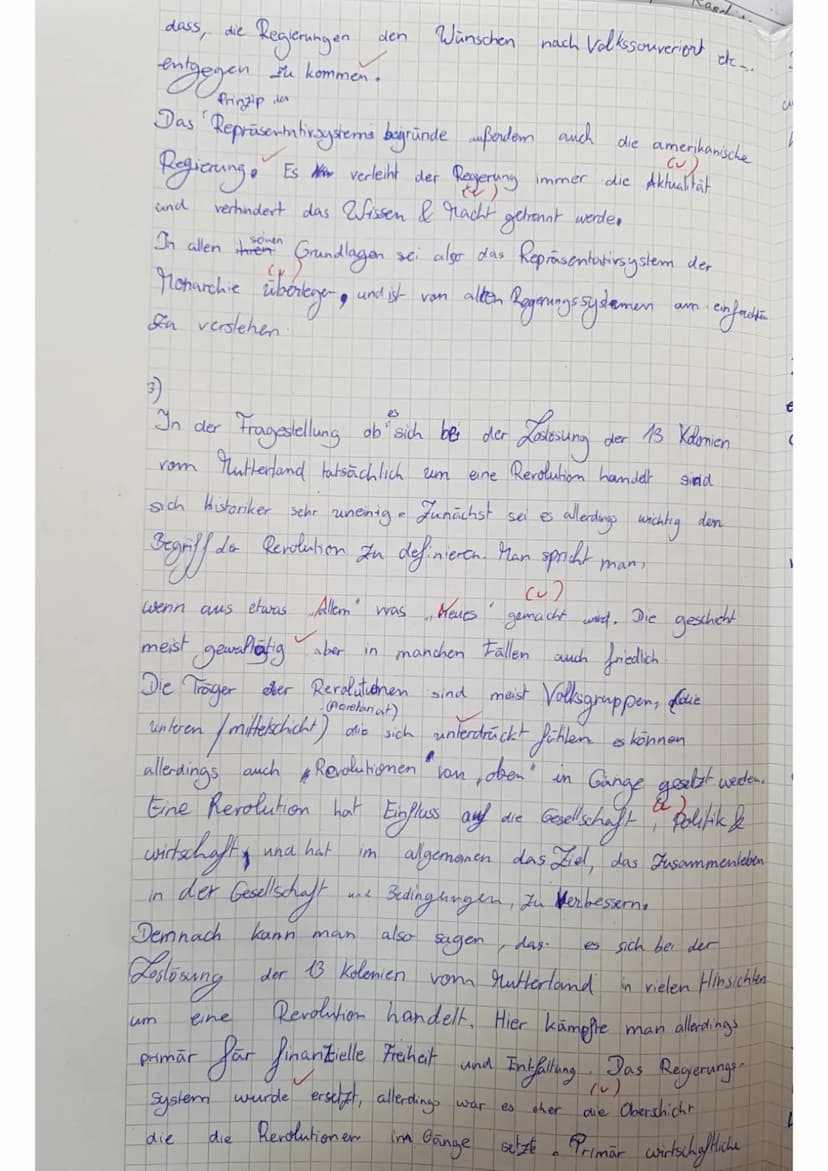 dass, die Regierungen den Wünschen nach Volkssouveränt etc...
entgegen zu kommen.
Prinzip des
Das Repräsentativsystems begründe außerdem auch die amerikanische
Regierung. Es verleiht der Regierung immer die Aktualität
und verhindert das Wissen & Macht getrennt werde.
In allen ihren seinen Grundlagen sei also das Repräsentativsystem der
Monarchie überlegen, und ist von allen Regierungssystemen am einfachsten
zu verstehen
3)
In der Fragestellung ob es sich bei der Loslösung der 13 Kolonien
vom Mutterland tatsächlich um eine Revolution handelt sind
sich Historiker sehr uneinig. Zunächst sei es allerdings wichtig den
Begriff der Revolution zu definieren. Man spricht man,
wenn aus etwas „Altem" was „Neues" gemacht wird. Die geschieht
meist gewaltätig aber in manchen Fällen auch friedlich
Die Träger der Revolutionen sind meist Volksgruppen, (die
unteren / mittelschicht) die sich unterdrückt fühlen es können
allerdings auch „Revolutionen von „oben" in Gänge gesetzt werden.
Eine Revolution hat Einfluss auf die Gesellschaft, Politik &
wirtschaft, und hat im allgemeinen das Ziel, das Zusammenleben
in der Gesellschaft und Bedingungen, zu Verbessern.
Demnach kann man also sagen, das es sich bei der
Loslösung der 13 Kolonien vom Mutterland in vielen Hinsichten
um eine Revolution handelt. Hier kämpfte man allerdings
primär für finanzielle Freiheit und Entfaltung. Das Regierungs-
system wurde ersetzt, allerdings war es eher die Oberschicht
die die Revolutionen in Gänge setzte. Primär wirtschaftliche